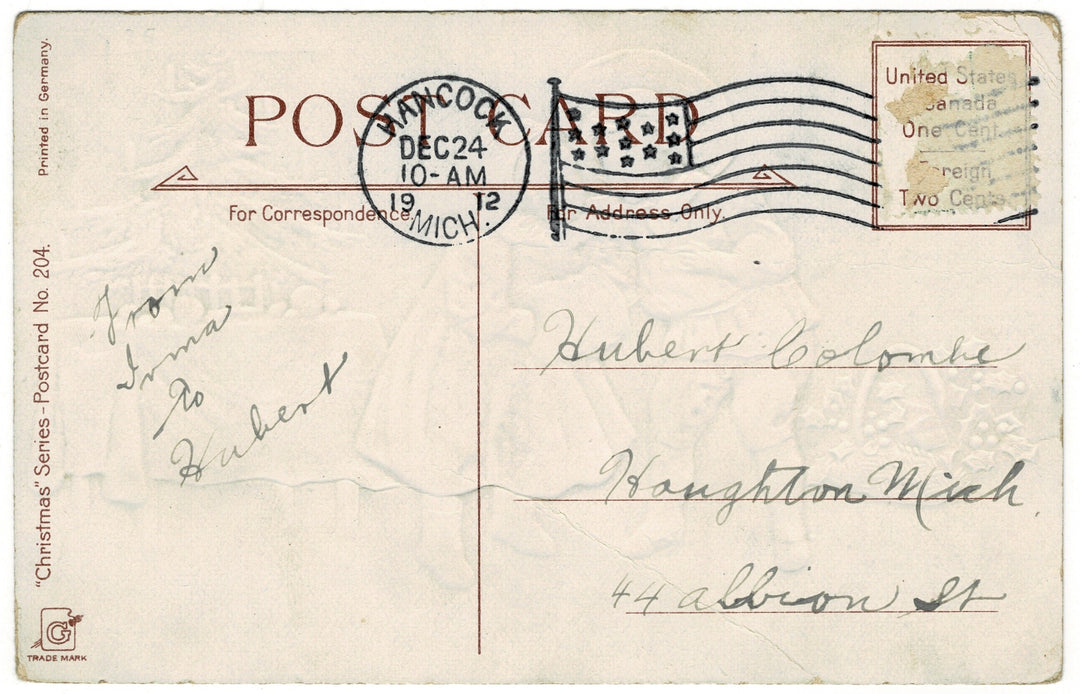 Printed in Germany.
"Christmas" Series - Postcard No. 204.
G
TRADE MARK
POST CARD
HANCOCK
DEC 24
10-AM
19 12
MICH.
For Correspondence.
For Address Only.
United States
Canada
One Cent.
Foreign
Two Cents
From
Irma
To
Hubert
Hubert Colombe
Houghton Mich.
44 Albion St